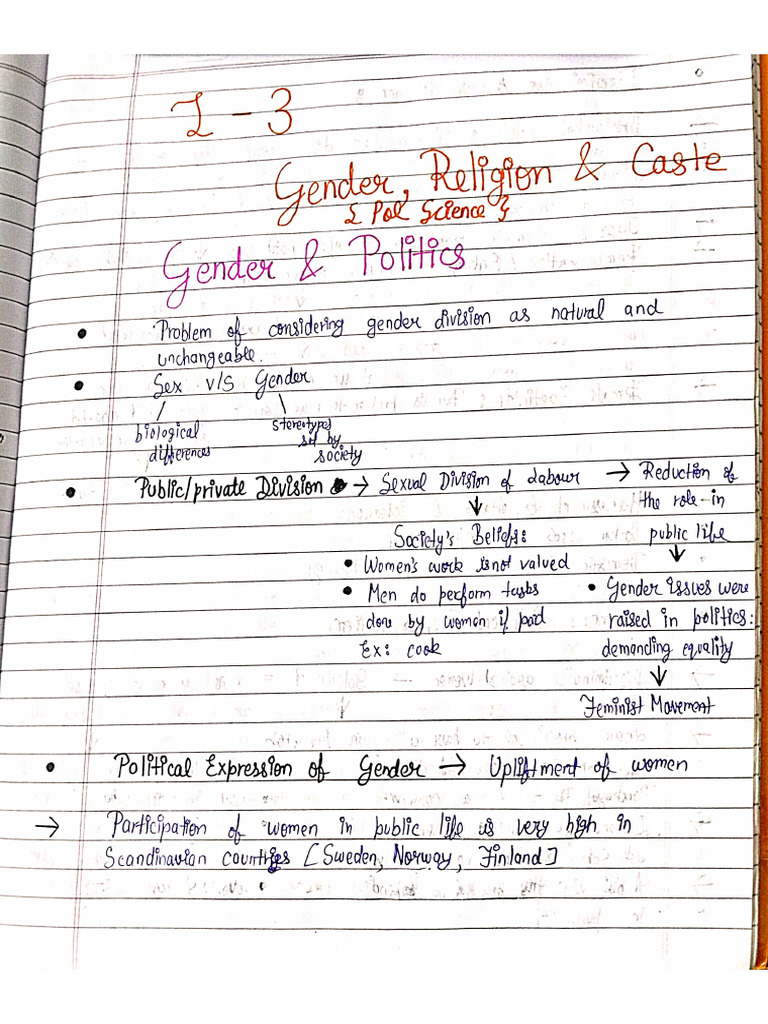 L - 3
Gender, Religion & Caste
{ Pol Science }
Gender & Politics
• Problem of considering gender division as natural and
unchangeable.
• Sex v/s Gender
biological
differences
stereotypes
set by
society
• Public/private Division → Sexual Division of Labour → Reduction of
the role in
public life
↓
Society's Beliefs:
• Women's work is not valued
• Men do perform tasks
done by women if paid
Ex: cook
↓
• Gender Issues were
raised in politics:
demanding equality
↓
Feminist Movement
• Political Expression of Gender → Upliftment of women
→ Participation of women in public life is very high in
Scandinavian countries [Sweden, Norway, Finland]